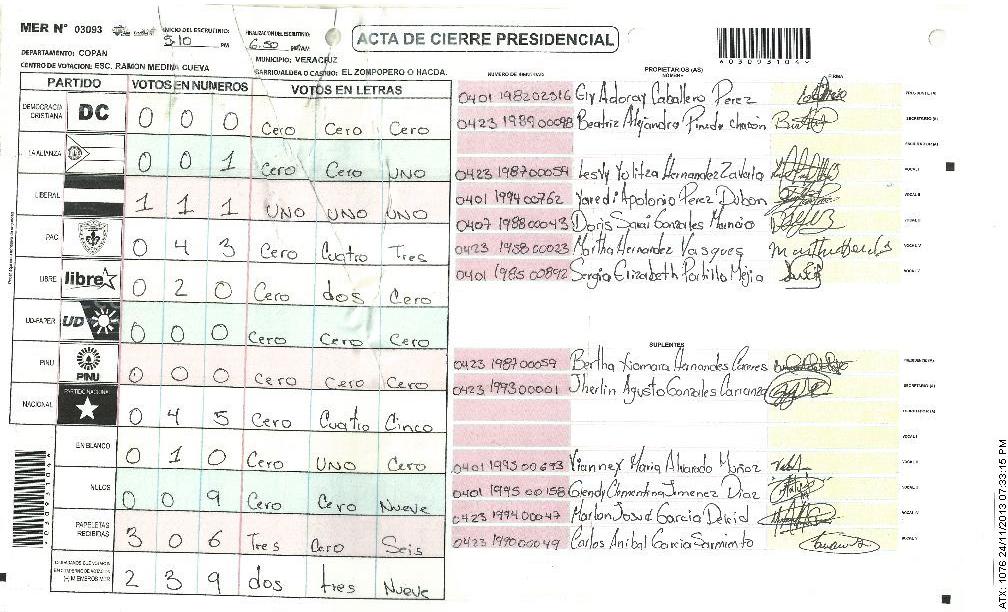 MER N° 03093
INICIO DEL ESCRUTINIO: 5:10 PM
FINALIZACION DEL ESCRUTINIO: 6:50 PM/AM
ACTA DE CIERRE PRESIDENCIAL
DEPARTAMENTO: COPAN
MUNICIPIO: VERACRUZ
CENTRO DE VOTACION: ESC. RAMON MEDINA CUEVA
BARRIO/ALDEA O CASERIO: EL ZOMPOPERO O HACDA.
PARTIDO VOTOS EN NUMEROS VOTOS EN LETRAS
DEMOCRACIA CRISTIANA DC 0 0 0 Cero Cero Cero
LA ALIANZA 0 0 1 Cero Cero UNO
LIBERAL 1 1 1 UNO UNO UNO
PAC 0 4 3 Cero Cuatro Tres
LIBRE libre 0 2 0 Cero dos Cero
UD-FAPER UD 0 0 0 Cero Cero Cero
PINU PINU 0 0 0 Cero Cero Cero
NACIONAL PARTIDO NACIONAL 0 4 5 Cero Cuatro Cinco
EN BLANCO 0 1 0 Cero UNO Cero
NULOS 0 0 9 Cero Cero Nueve
PAPELETAS RECIBIDAS 3 0 6 Tres Cero Seis
(+) MIEMBROS MER 2 3 9 dos tres Nueve
NUMERO DE IDENTIDAD PROPIETARIOS (AS) NOMBRE FIRMA
0401 198202516 Gly Adoray Caballero Perez PRESIDENTE (A)
0423 198900098 Beatriz Alejandra Pineda chacon SECRETARIO (A)
ESCRUTADOR (A)
0423 198700059 Lesly Yolitza Hernandez Zavala VOCAL I
0401 199400762 Yaredi Apolonio Perez Dubon VOCAL II
0407 198800043 Doris Sarai Gonzales Mancio
0423 195800023 Martha Hernandez Vasques VOCAL IV
0401 198500892 Sergia Elizabeth Portillo Mejia VOCAL V
SUPLENTES
0423 198700059 Bertha Xiomara Hernandes Caceres PRESIDENTE (A)
0423 199300001 Jherlin Agusto Gonzales Carranza SECRETARIO (A)
ESCRUTADOR (A)
VOCAL I
0401 199500693 Viannex Maria Alvarado Muñoz
0401 199500158 Glendy Clementina Jimenez Diaz
0423 199400047 Marlon Josue Garcia
0423 199000049 Carlos Anibal Garcia Sarmiento VOCAL V
ATX: 1076 24/11/2013 07:33:15 PM